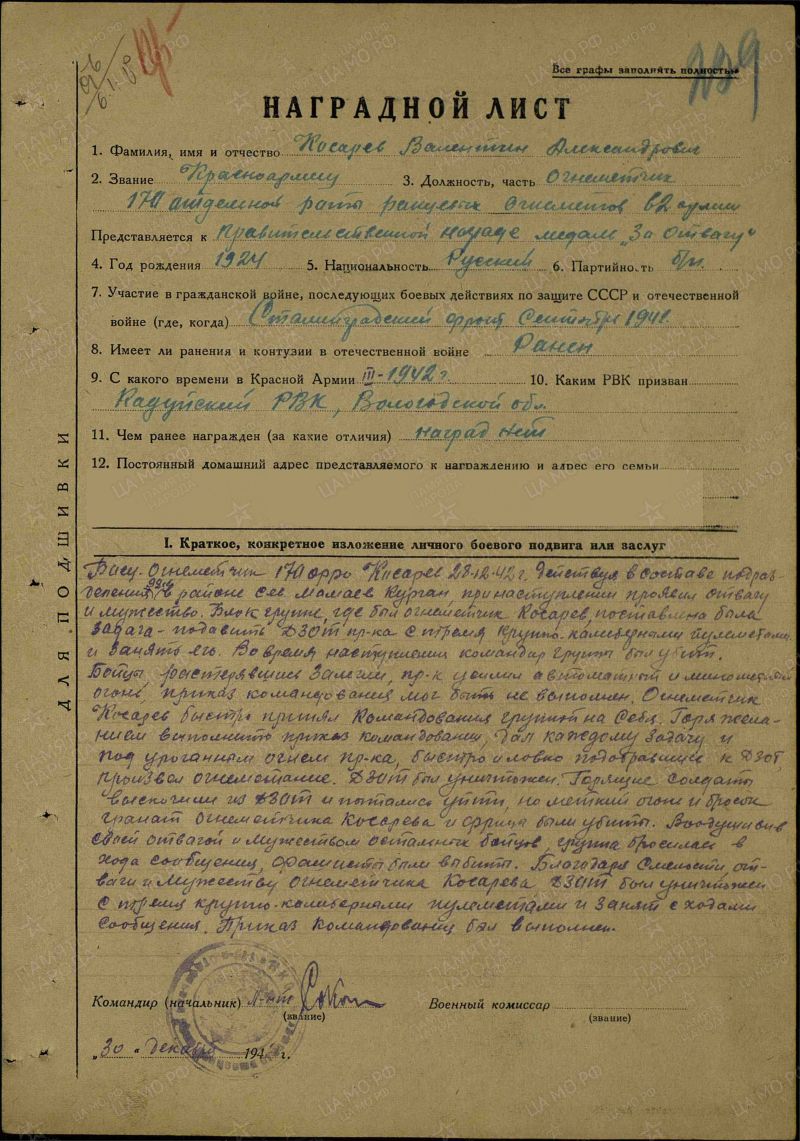 Все графы заполнять полностью
229
НАГРАДНОЙ ЛИСТ
1. Фамилия, имя и отчество Косарев Валентин Александрович
2. Звание Красноармеец 3. Должность, часть Огнеметчик
170 отдельной роты ранцевых огнеметов 62 армии
Представляется к правительственной награде медаль „За отвагу"
4. Год рождения 1924 5. Национальность Русский 6. Партийность б/п.
7. Участие в гражданской войне, последующих боевых действиях по защите СССР и отечественной
войне (где, когда) Сталинградский фронт Сентябрь 194
8. Имеет ли ранения и контузии в отечественной войне Ранен
9. С какого времени в Красной Армии III-1942 г 10. Каким РВК призван
Кадуйский РВК, Вологодской обл.
11. Чем ранее награжден (за какие отличия) наград нет
12. Постоянный домашний адрес представляемого к награждению и адрес его семьи
I. Краткое, конкретное изложение личного боевого подвига или заслуг
Огнеметчик 170 орро Косарев 28-12-42 г. действуя в составе подраз-
деления в районе сев. Мамаев Курган, при наступлении проявил отвагу
и мужество. Блок группе, где был огнеметчик Косарев, поставлена была
задача - подавить ДЗОТ пр-ка с тремя крупно-калиберными пулеметами
и занять его. Во время наступления командир группы был убит.
Бойцы растерявшись залегли, пр-к усилил автоматный и минометный
огонь, приказ командования мог быть не выполнен. Огнеметчик
Косарев быстро принял командования группой на себя. Горя жела-
нием выполнить приказ командования, дал каждому задачу и
под ураганным огнем пр-ка, быстро и ловко подобравшись к ДЗОТ,
произвел огнеметание. ДЗОТ был уничтожен. Горящие солдаты
выскочили из ДЗОТ и пытались уйти, но меткий огонь и бросок
гранат огнеметчика Косарева и фрицы были убиты. Воодушевив
своей отвагой и мужеством остальных бойцов, группа бросилась в
хода сообщения, фашисты были выбиты. Благодаря смелости, от-
ваги и мужеству огнеметчика Косарева ДЗОТ был уничтожен
с тремя крупно-калиберными пулеметами и занят с ходами
сообщения. Приказ командования был выполнен.
Командир (начальник) л-нт
(звание)
Военный комиссар
(звание)
„30" декабря 194 г.
ДЛЯ ПОДШИВКИ